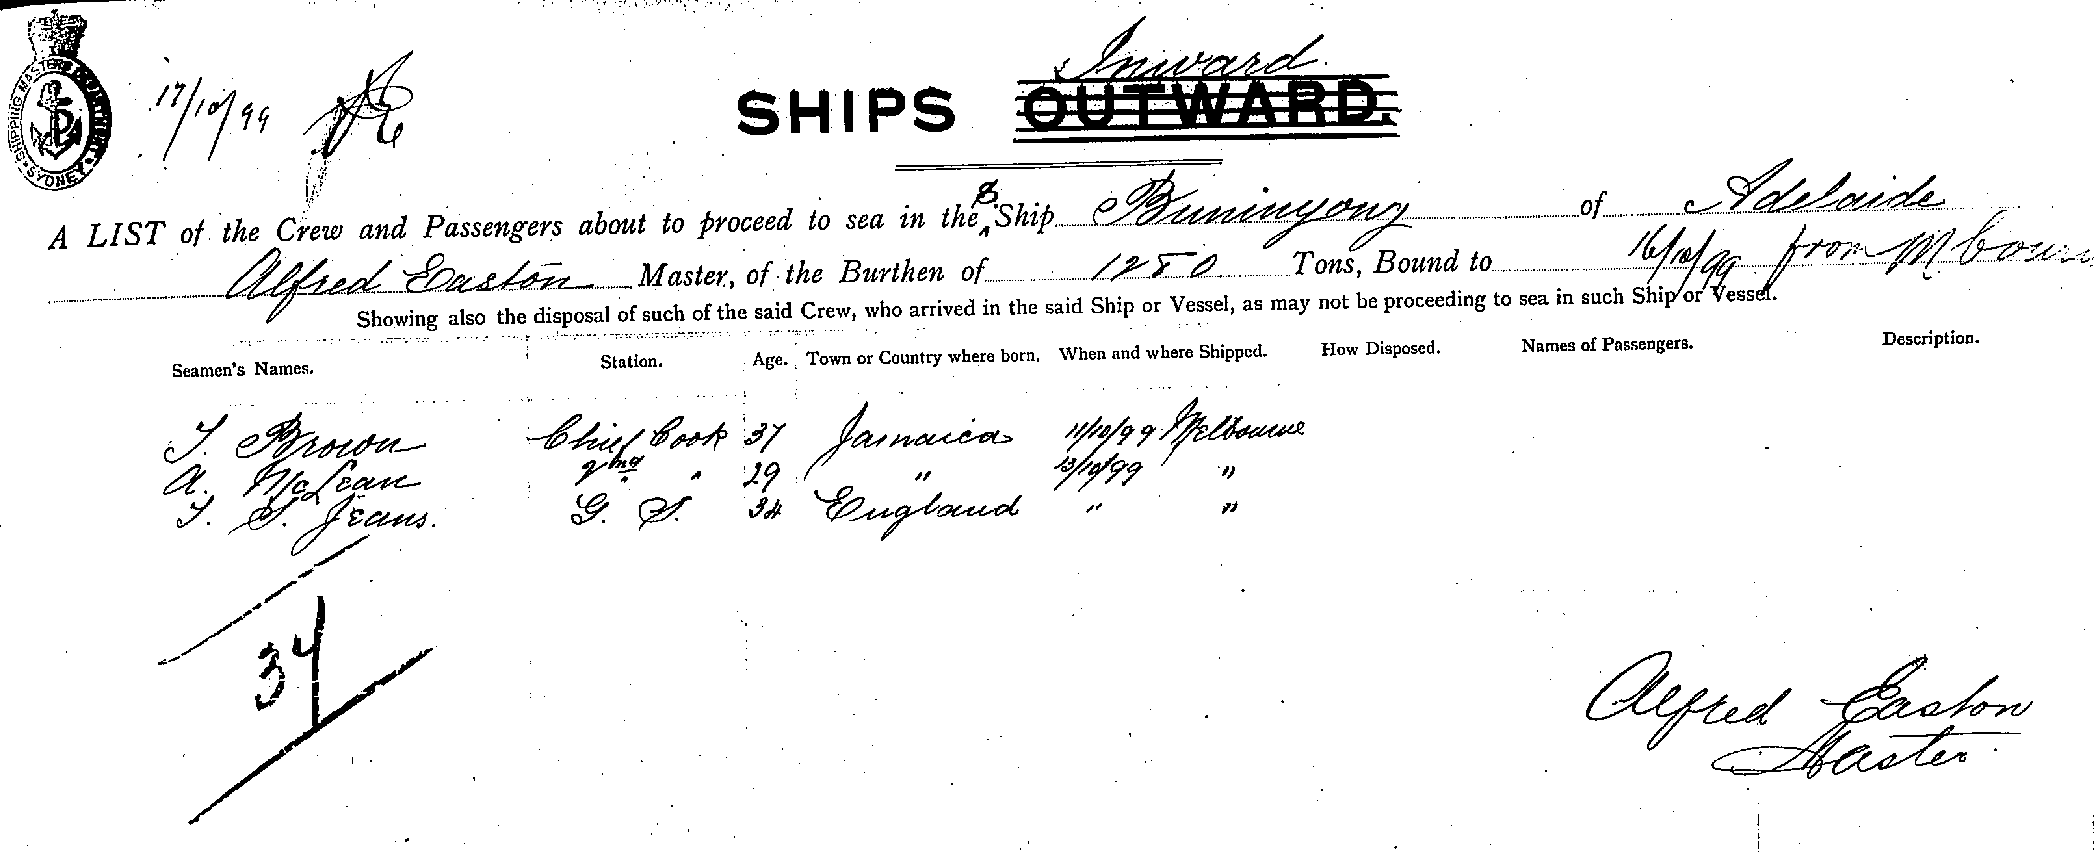 SHIPPING MASTER'S DEPARTMENT SYDNEY
17/10/99
Inward
SHIPS OUTWARD.
A LIST of the Crew and Passengers about to proceed to sea in the S. Ship Buninyong of Adelaide
Alfred Easton Master, of the Burthen of 1280 Tons, Bound to 16/10/99 from
Showing also the disposal of such of the said Crew, who arrived in the said Ship or Vessel, as may not be proceeding to sea in such Ship or Vessel.
Seamen's Names. Station. Age. Town or Country where born. When and where Shipped. How Disposed. Names of Passengers. Description.
T. Brown Chief Cook 37 Jamaica 11/10/99 Melbourne
A. McLean 2nd " 29 " 13/10/99 "
T. S. Jeans. G. S. 34 England " "
34
Alfred Easton
Master.